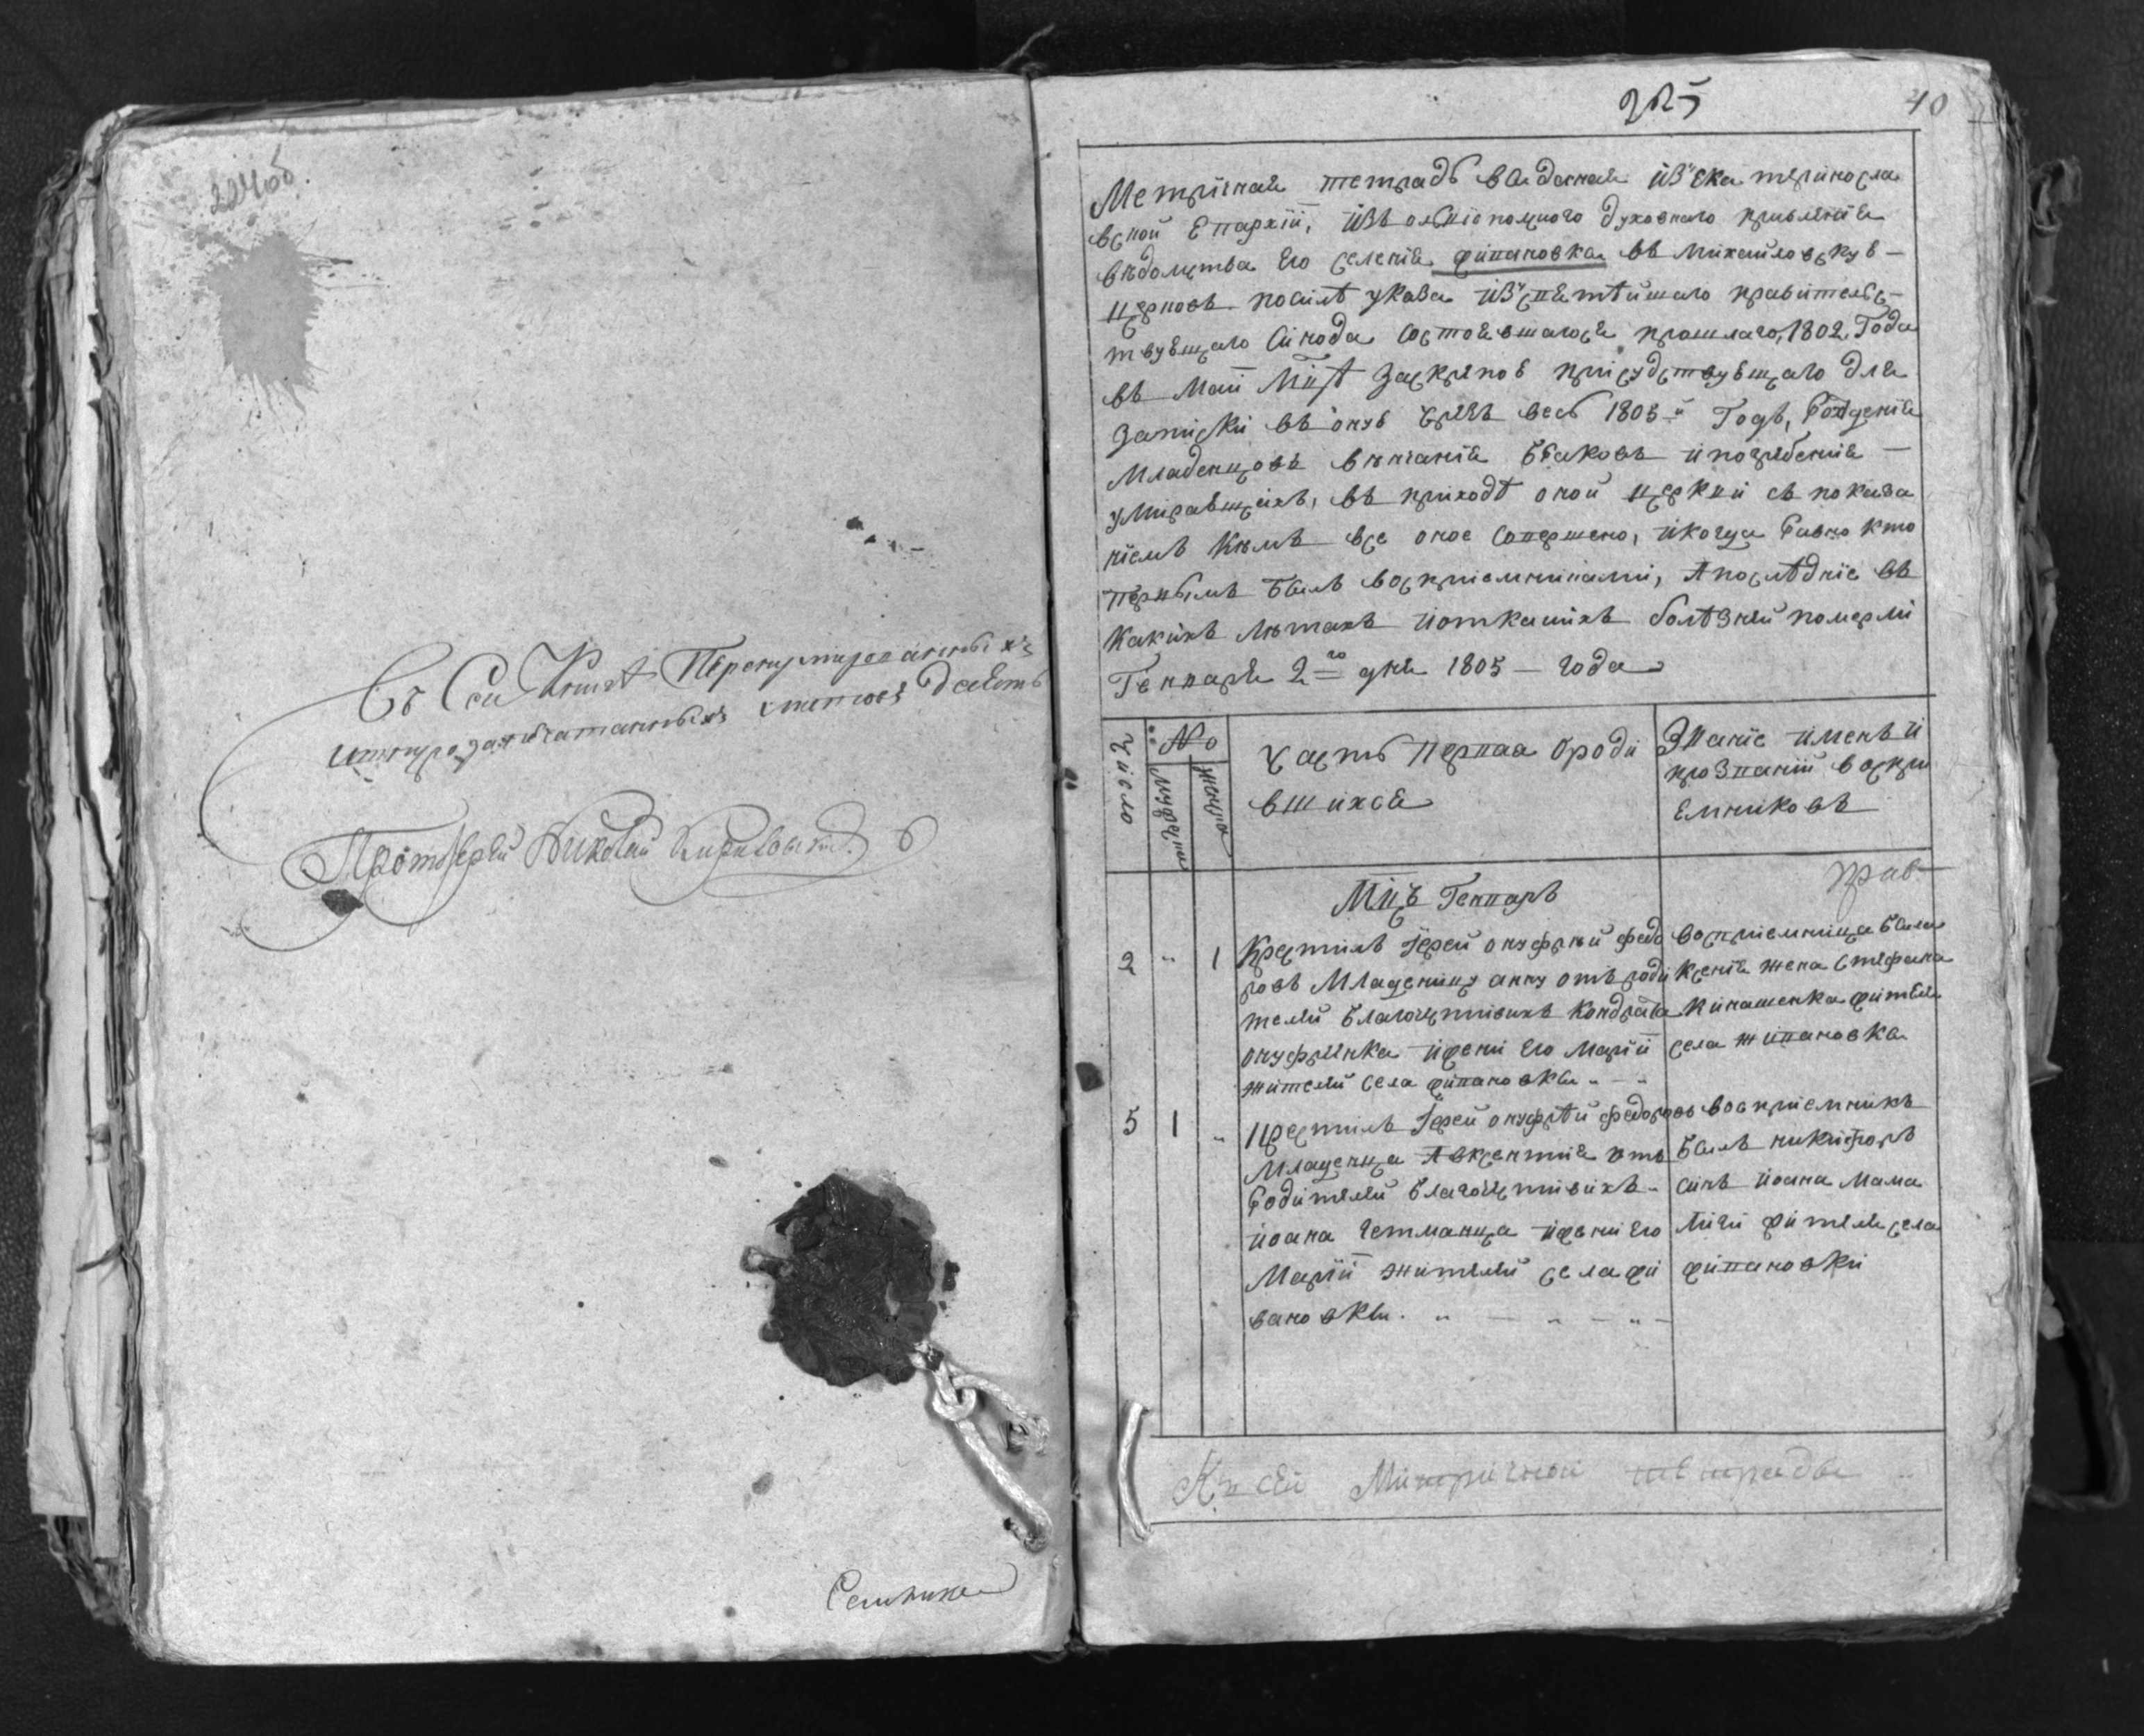 224об.
Въ Сей Книгѣ Перенумерованныхъ
и запечатанныхъ листовъ
Протоіерей Николай
225
40
Метричная тетрадь выданная изъ Екатериносла
вской Епархіи, изъ ольвіопольного духовнаго правленія
вѣдомства его селенія живановка въ Михайловскую
церковь посилѣ указа изъ святѣйшаго правительс-
твующаго Синода состоявшагося прошлаго, 1802. Года
въ Маіи Мцѣ заскрепою присудствующаго для
записки въ оную чрезъ весь 1805-й Годъ, Рожденія
Младенцовъ вѣнчанія Браковъ и погребенія —
умиравщихъ, въ приходѣ оной церкви съ показа
ніемъ Кѣмъ все оное совершено, и когда Равно кто
первымъ Былъ воспріемниками, А послѣдніе въ
какихъ лѣтахъ и откакихъ болѣзней померли
Генваря 2го дня 1805 — года
Число
№
Мужеска
Женска
Часть первая о роди
вшихся
Званіе именъ и
прозваній воспри
емниковъ
Мцъ Генварь
2 " 1 Крестилъ Іерей онуфрий федо
ровъ Младеницу анну отъ роди
телей Благочестивихъ Кондрата
онуфриенка и жени его Маріи
жителей села живановки " — "
воспріемница Была
Ксенія жена Стефана
Кинашенка жителя
села живановка
5 1 " Крестилъ Іерей онуфрѣй федоровъ
Младенца Авксентия отъ
Родителей Благочестивихъ -
иоана гетманца и жени его
Маріи жителей села жи
вановки. " — " — " —
воспріемникъ
Былъ никифоръ
синъ иоана Мама
лиги жителя села
живановки
Къ сей Митричной тетради